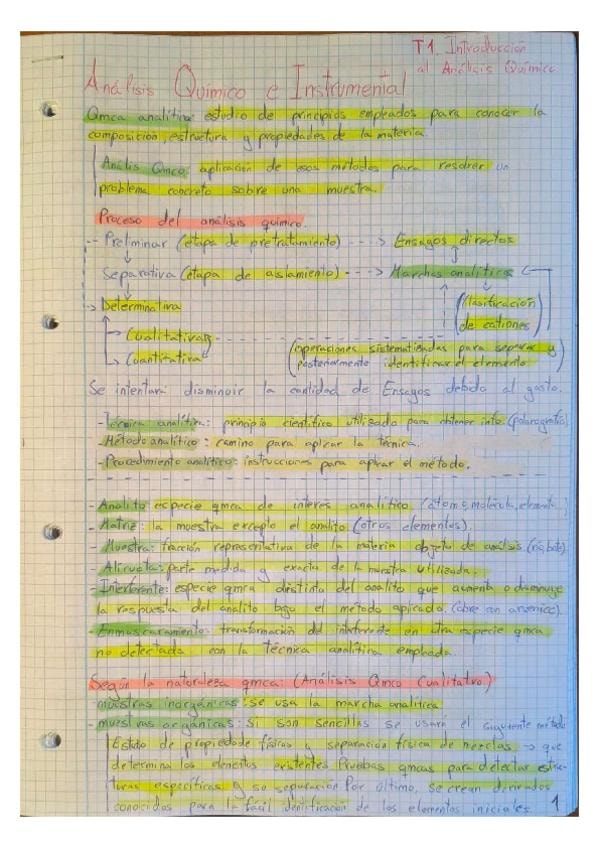 T1. Introducción
al Análisis Químico
Análisis Químico e Instrumental
Qmca analítica: estudio de principios empleados para conocer la
composición, estructura y propiedades de la materia.
Anális Qmco: aplicación de esos métodos para resolver un
problema concreto sobre una muestra.
Proceso del análisis químico.
-- Preliminar (etapa de pretratamiento) ----> Ensayos directos
Separativa (etapa de aislamiento) ---> Marchas analíticas
-> Determinativa
(Clasificación
de cationes)
-> Cualitativa
-> Cuantitativa
(operaciones sistematizadas para separar y
posteriormente identificar el elemento)
Se intentará disminuir la cantidad de Ensayos debido al gasto.
- Técnica analítica: principio científico utilizado para obtener info (polarografía)
- Método analítico: camino para aplicar la técnica.
- Procedimiento analítico: instrucciones para aplicar el método.
- Analito especie qmca de interés analítico. (átomo, molécula, elemento)
- Matriz: la muestra excepto el analito (otros elementos).
- Muestra: fracción representativa de la materia objeto de análisis.
- Alicuota: parte medida y exacta de la muestra utilizada.
- Interferente: especie qmca distinta del analito que aumenta o disminuye
la respuesta del analito bajo el método aplicado. (cobre con arsenico)
- Enmascaramiento: transformación del interferente en otra especie qmca
no detectada con la técnica analítica empleada.
Según la naturaleza qmca: (Análisis Qmco Cualitativo)
- muestras inorgánicas: se usa la marcha analítica
- muestras orgánicas: si son sencillas se usará el siguiente método
Estudio de propiedade físicas y separación física de mezclas -> que
determina los elementos existentes. Pruebas qmcas para detectar estruc-
turas específicas y su separación. Por último, se crean derivados
conocidos para la fácil identificación de los elementos iniciales.
1